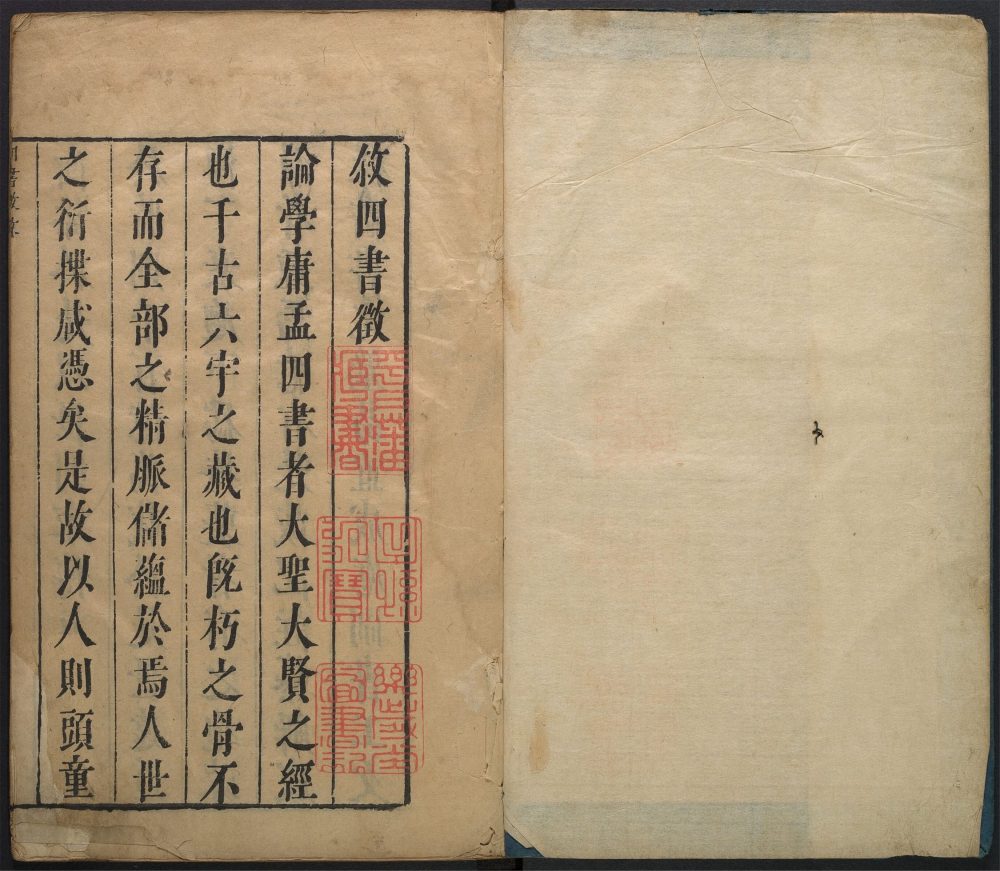 敘四書徵
論學庸孟四書者大聖大賢之經
也千古六宇之藏也旣朽之骨不
存而全部之精脈儲蘊於焉人世
之衍揲咸憑矣是故以人則頭童